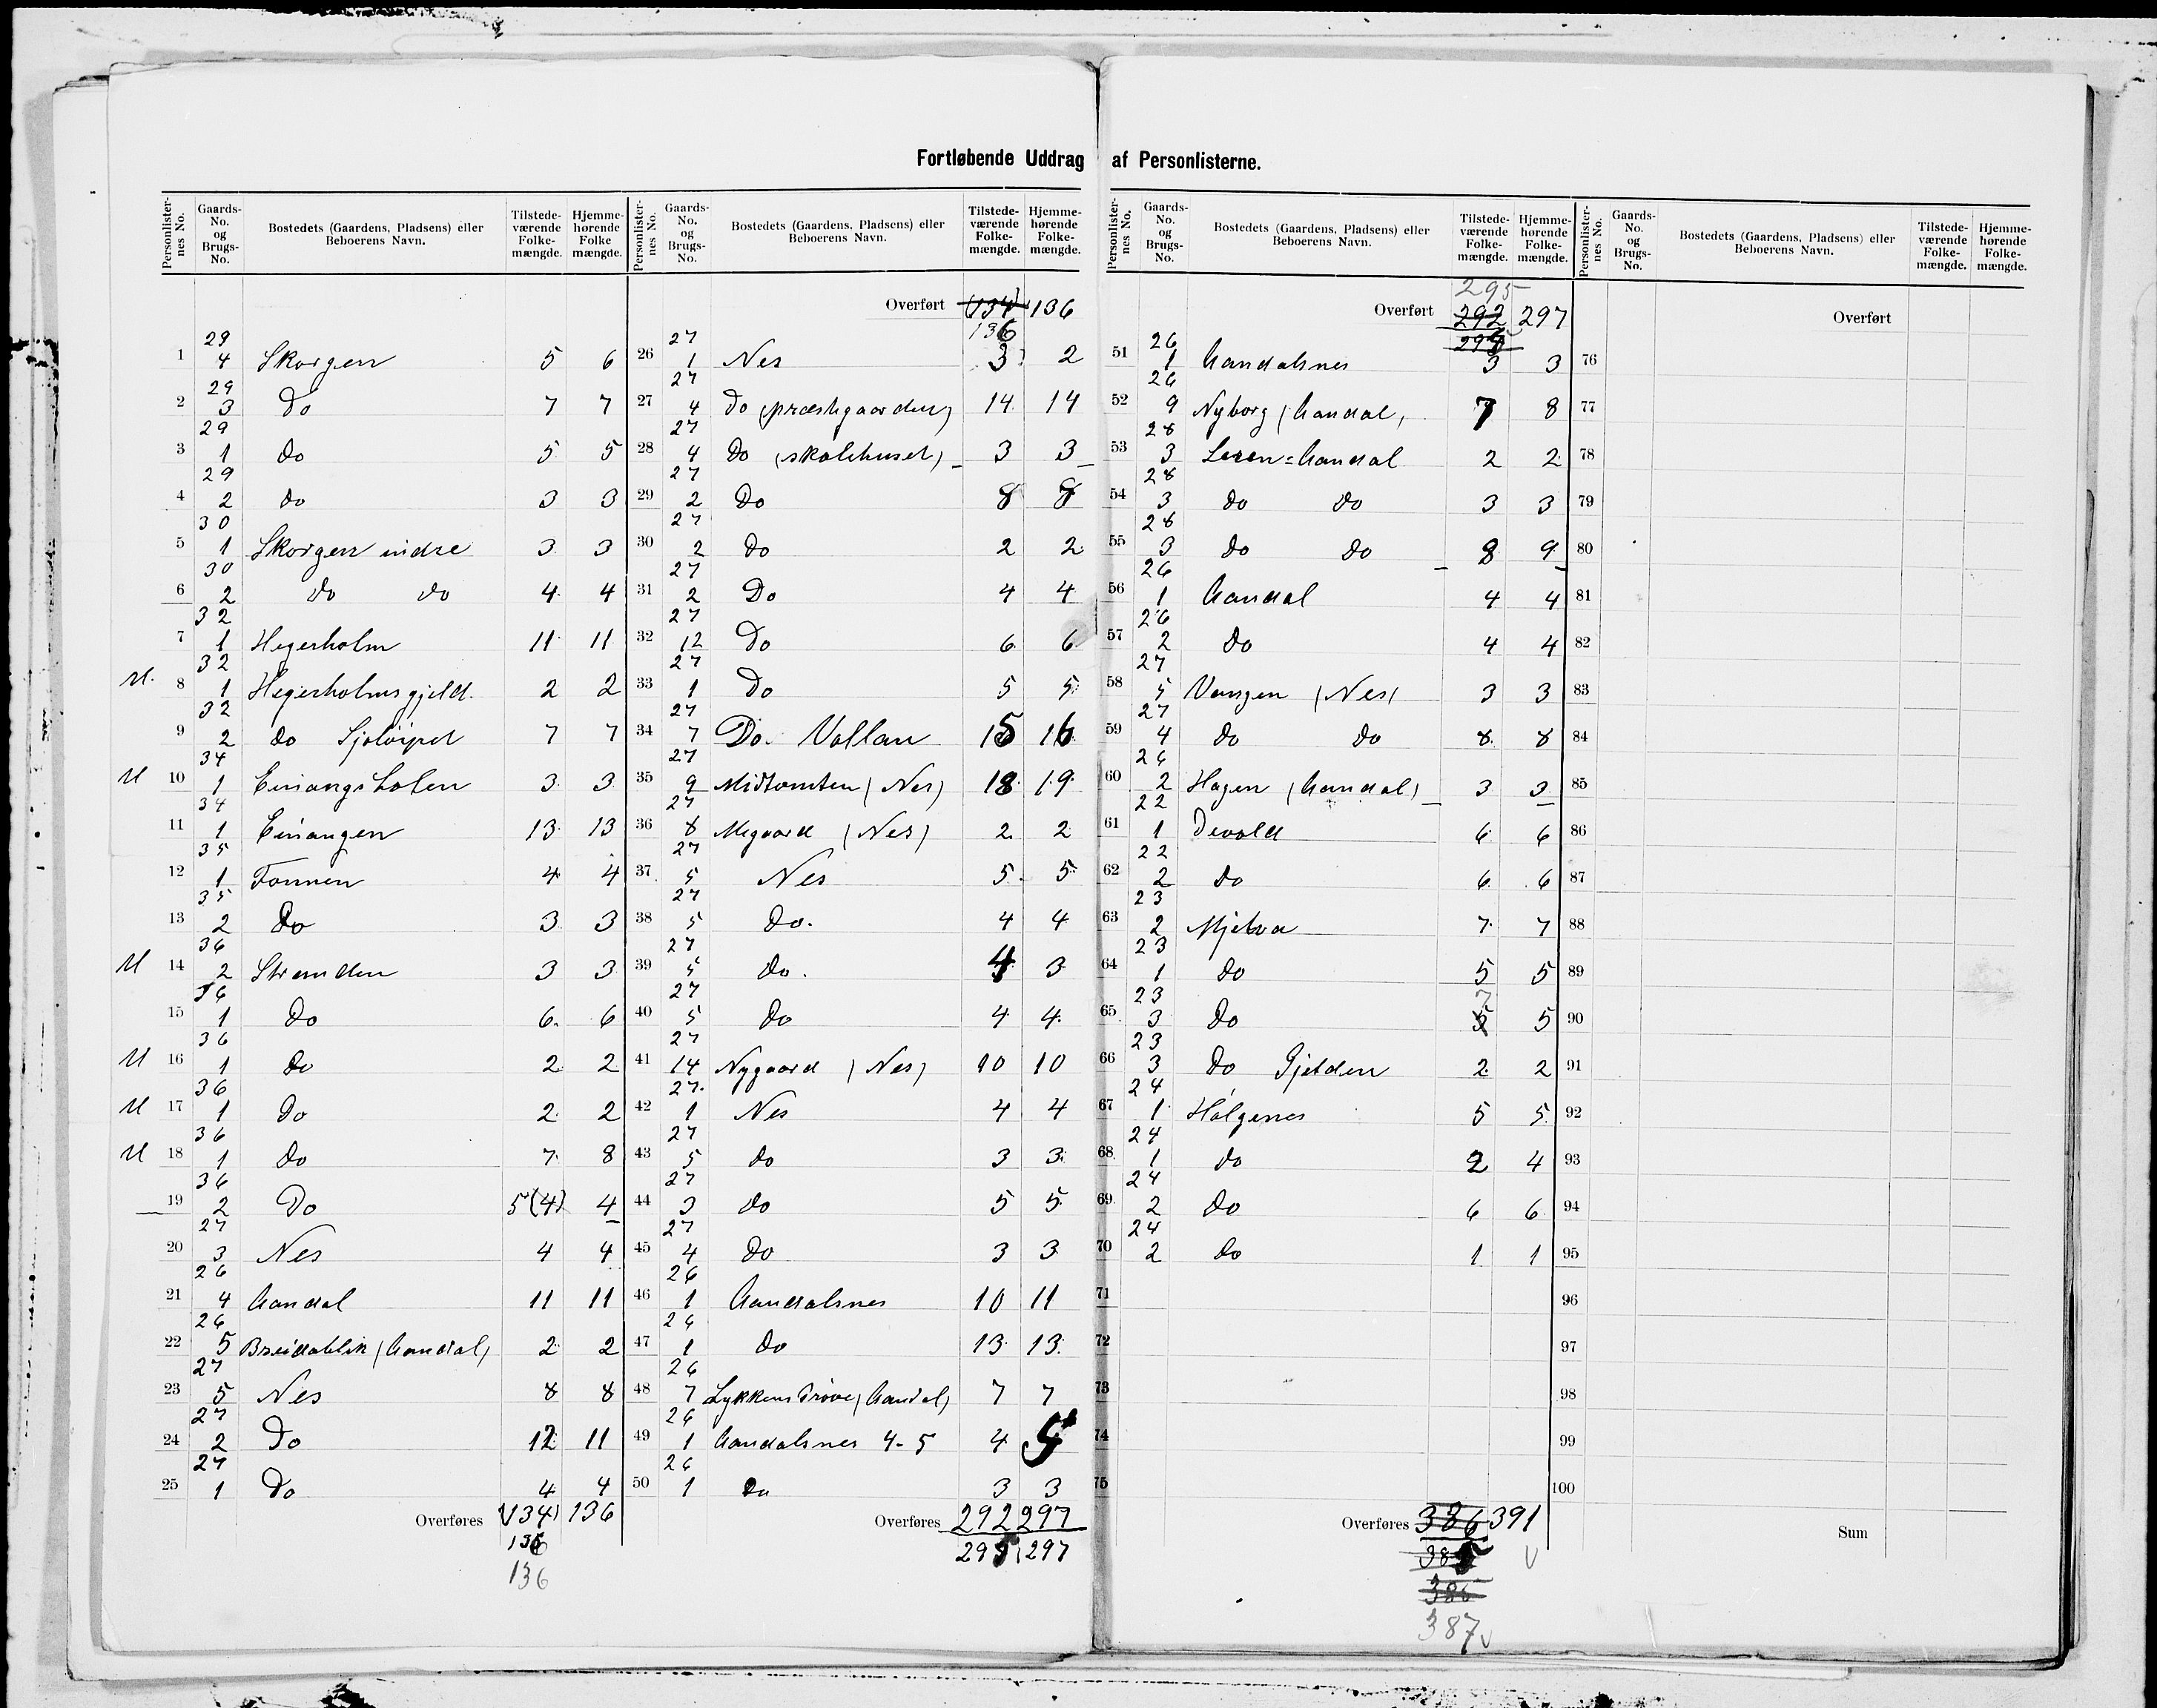 Fortløbende Uddrag af Personlisterne.
Personlister-nes No. | Gaards-No. og Brugs-No. | Bostedets (Gaardens, Pladsens) eller Beboerens Navn. | Tilstede-værende Folke-mængde. | Hjemme-hørende Folke mængde.
1 29 4 Skorgen 5 6
2 29 3 Do 7 7
3 29 1 do 5 5
4 29 2 do 3 3
5 30 1 Skorgen indre 3 3
6 30 2 do do 4 4
7 32 1 Hegerholm 11 11
U. 8 32 1 Hegerholmsgjeld 2 2
9 32 2 do 7 7
U 10 34 1 3 3
11 34 1 Einangen 13 13
12 35 1 Fonnen 4 4
13 35 2 Do 3 3
U 14 36 2 Stranden 3 3
15 36 1 Do 6 6
U 16 36 1 Do 2 2
U 17 36 1 Do 2 2
U 18 36 1 Do 7 8
19 36 2 Do 5(4) 4
20 27 3 Nes 4 4
21 26 4 Aandal 11 11
22 26 5 Breidablik (Aandal) 2 2
23 27 5 Nes 8 8
24 27 2 Do 12 11
25 27 1 Do 4 4
Overføres (134) 136
136
136
Personlister-nes No. | Gaards-No. og Brugs-No. | Bostedets (Gaardens, Pladsens) eller Beboerens Navn. | Tilstede-værende Folke-mængde. | Hjemme-hørende Folke-mængde.
Overført (134) 136
136
26 27 1 Nes 3 2
27 27 4 Do (præstegaarden) 14 14
28 27 4 Do (skolehuset) 3 3
29 27 2 Do 8 8
30 27 2 Do 2 2
31 27 2 Do 4 4
32 27 12 Do 6 6
33 27 1 Do 5 5
34 27 7 Do. Vollan 15 16
35 27 9 Midtomten (Nes) 18 19
36 27 8 (Nes) 2 2
37 27 5 Nes 5 5
38 27 5 Do. 4 4
39 27 5 do. 4 3
40 27 5 do 4 4
41 27 14 Nygaard (Nes) 10 10
42 27 1 Nes 4 4
43 27 5 do 3 3
44 27 3 do 5 5
45 27 4 Do 3 3
46 26 1 Aandalsnes 10 11
47 26 1 do 13 13
48 26 7 Lykkens Prøve (Aandal) 7 7
49 26 1 Aandalsnes 4-5 4
50 26 1 Do 3 3
Overføres 292 297
295 297
Personlister-nes No. | Gaards-No. og Brugs-No. | Bostedets (Gaardens, Pladsens) eller Beboerens Navn. | Tilstede-værende Folke-mængde. | Hjemme-hørende Folke-mængde.
295
Overført 292 297
51 26 1 Aandalsnes 3 3
52 26 9 Nyborg (Aandal) 7 8
53 28 3 Leren=Aandal 2 2
54 28 3 do do 3 3
55 28 3 do do 8 9
56 26 1 Aandal 4 4
57 26 2 do 4 4
58 27 5 Vangen (Nes) 3 3
59 27 4 do do 8 8
60 26 2 Hagen (Aandal) 3 3
61 22 1 Devold 6 6
62 22 2 do 6 6
63 23 2 Mjelva 7 7
64 23 1 do 5 5
65 23 3 Do 7 5 5
66 23 3 Do Gjelden 2 2
67 24 1 Holgenes 5 5
68 24 1 do 2 4
69 24 2 do 6 6
70 24 2 do 1 1
71
72
73
74
75
Overføres 386 391
385
385
387
Personlister-nes No. | Gaards-No. og Brugs-No. | Bostedets (Gaardens, Pladsens) eller Beboerens Navn. | Tilstede-værende Folke-mængde. | Hjemme-hørende Folke-mængde.
Overført
76
77
78
79
80
81
82
83
84
85
86
87
88
89
90
91
92
93
94
95
96
97
98
99
100
Sum